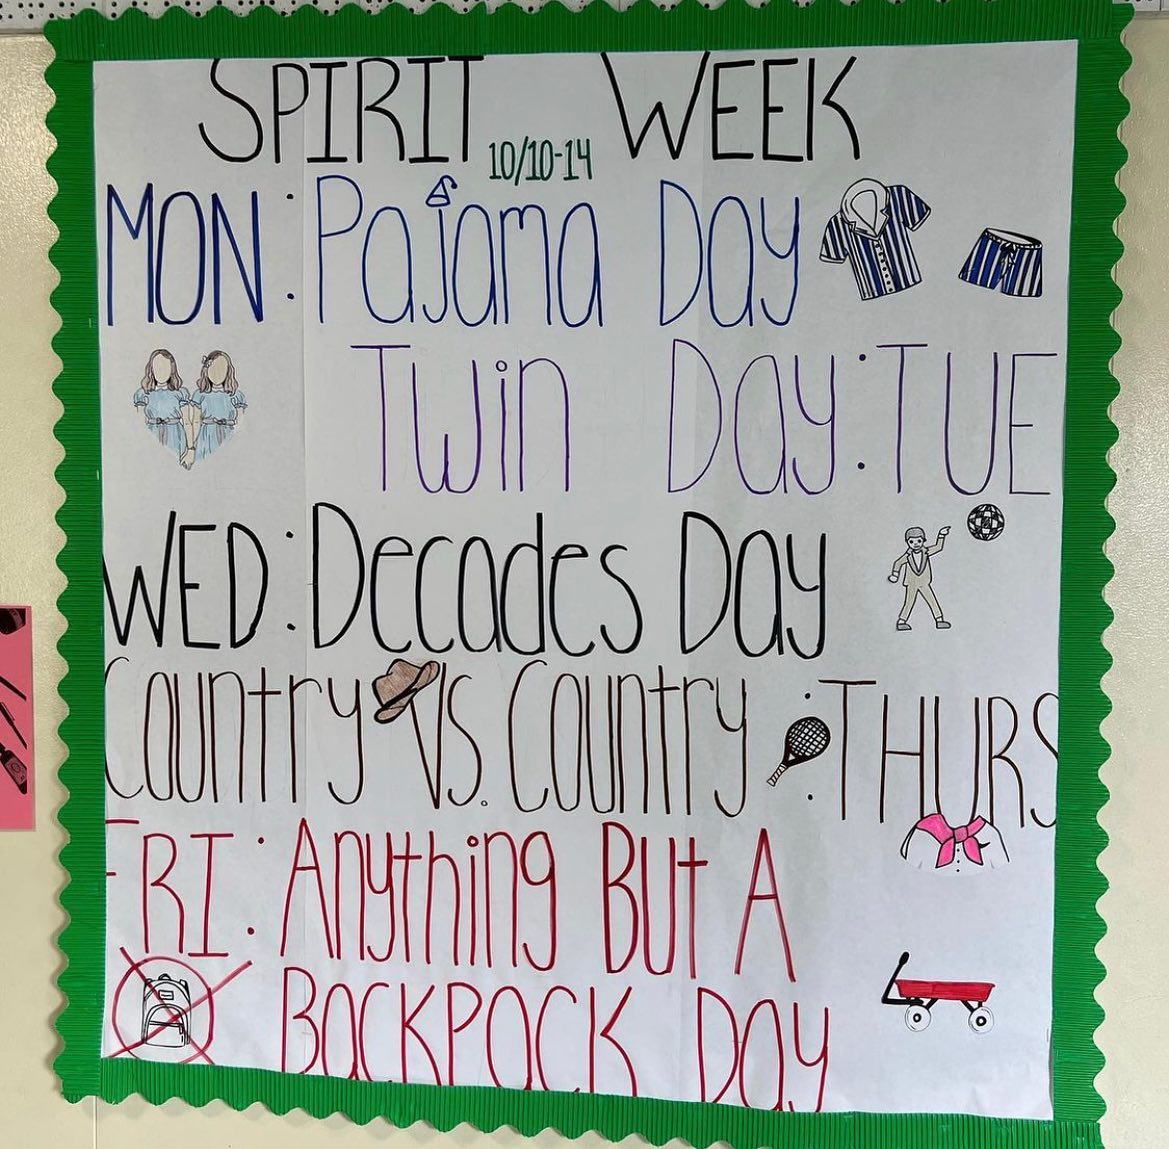 SPIRIT WEEK
10/10-14
MON: Pajama Day
Twin Day: TUE
WED: Decades Day
Country Vs. Country: THURS
FRI: Anything But A
Backpack Day